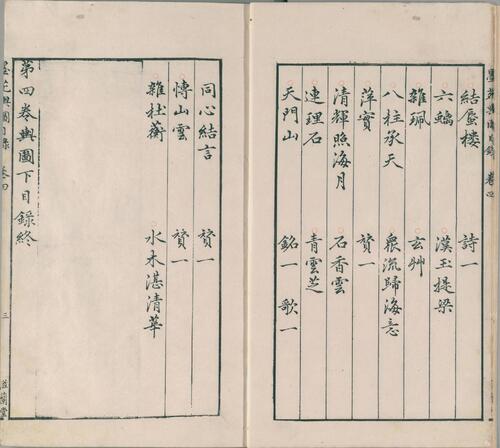 結蜃樓 詩一
六蝠 漢玉提梁
雜珮 玄艸
八柱承天 衆流歸海意
萍實 贊一
清輝照海月 石香雲
連理石 青雲芝
天門山 銘一 歌一
同心結言 贊一
慱山雲 贊一
雜杜蘅 水木湛清華
第四卷輿圖下目錄終
墨苑輿圖目錄 卷四
三
滋蘭堂